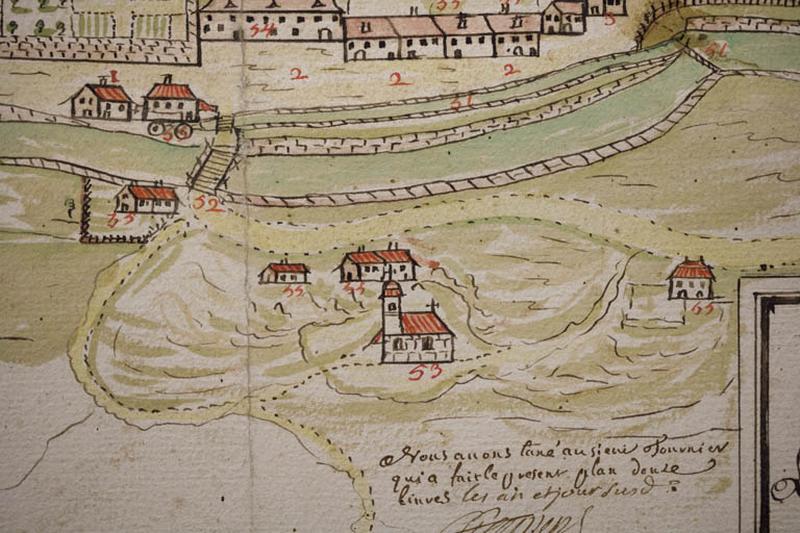 54
55
5
2 2 2
51
56
55
52
55
55
55
55
53
Nous auons taxé au sieur Fournier
qui a fait le present plan douze
liures les an et jour susd